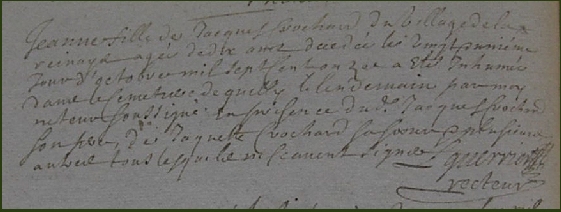 Jeanne fille de Jacques Crochard du village de la
agée de dix ans decedée le vingt uniéme
jour d'octobre mil sept sent onze a eté inhumée
dans le semetiere de quilly le lendemain par moy
recteur soussigné en presence du dt Jacques Crochard
son pere, de Jaquette Crochard sa soeur & plusieurs
autres tous lesquels ne scavent signer Guerrier
recteur